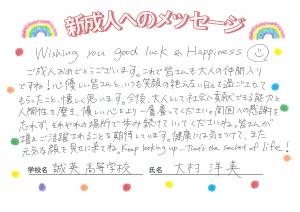 新成人へのメッセージ
Wishing you good luck & Happiness
ご成人おめでとうございます。これで皆さんも大人の仲間入り
ですね！心優しい皆さんと、いつも笑顔の絶えない日々を過ごせて
もらったこと、懐しく思います。今後、大人として社会に貢献できる能力と
人間性を磨き、優しい心をより一層養ってください。周囲への感謝を
忘れず、それぞれの場所で歩み続けていてくださいね。皆さんが
益々ご活躍されることを期待しています。健康に気をつけて、また
元気な顔を見せに来てね。Keep looking up… That's the secret of life!
学校名 誠英高等学校 氏名 大村洋美